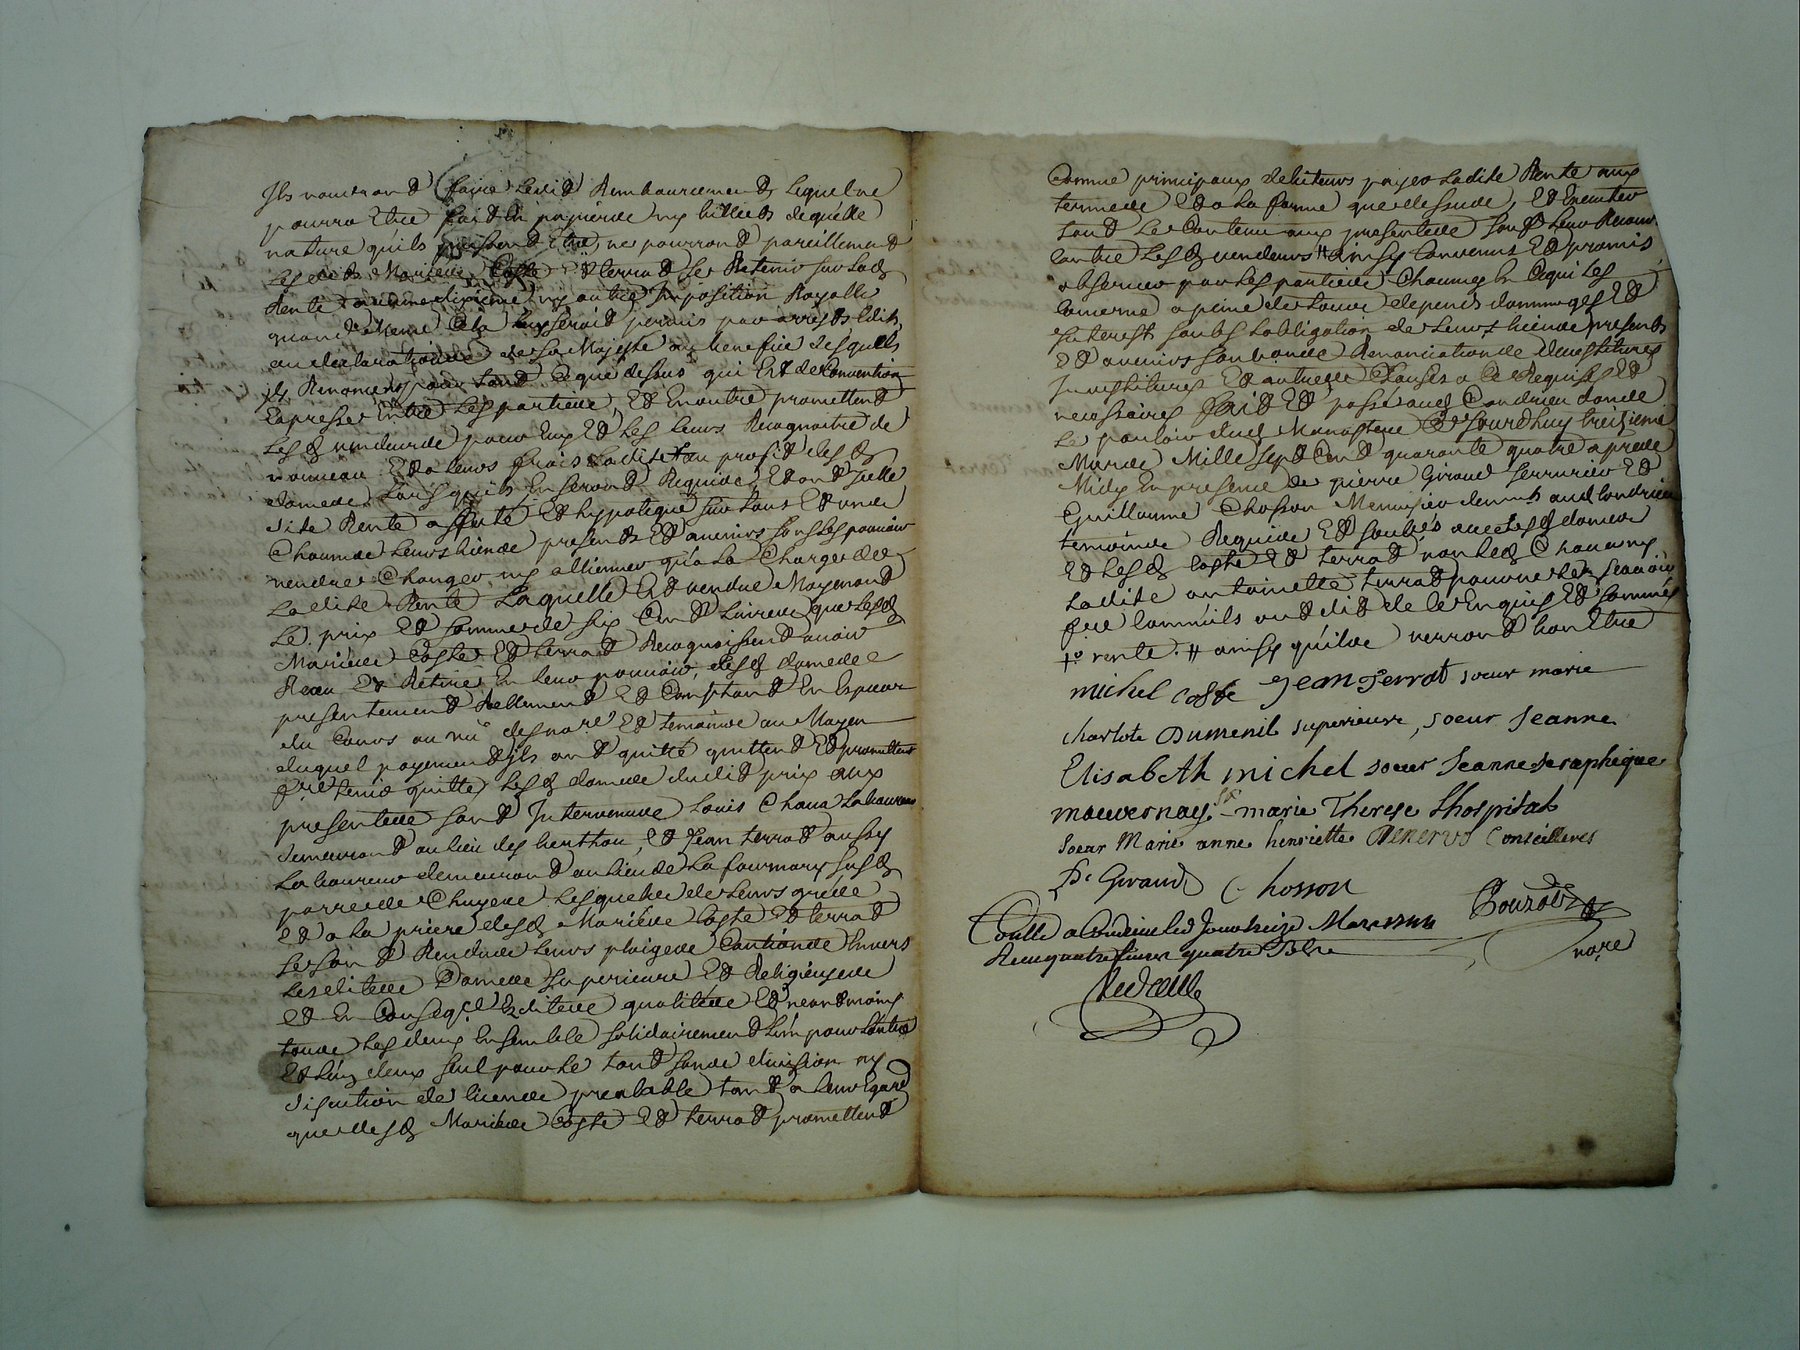 Ils voudront faire ledit Remboursement Lequel ne
pourra Etre fait en papiers ny billiets dequelle
nature quils puissent Etre, ne pourront pareillement
Lesdits Mariees Coste Et terrat se Retenir sur lad
Rente aucune dixieme ny autre Imposition Royalle
quand meme Cela leur seroit permis par arrests Edits
ou declarations de sa Majesté au benefice desquels
ils Renoncent pour tout Ceque dessus qui Est de Convention
Expresse Entre Les parties, Et Enoutre promettent
Lesd vendeurs pour Eux Et les leurs Recognoitre de
nouveau Et a leurs frais Ladite au profit desd
dames Lorsquils En seront Requis Et ont Icelle
dite Rente affecté Et hypotequé sur tous Et uns
Chacuns leurs biens presents Et avenirs sans les pouvoir
vendre Changer ny alliener qua La Charge de
Ladite Rente Laquelle Est vendue Moyenant
Le prix Et somme de six Cent Livres que Lesd
Mariees Coste Et terrat Recognoissent avoir
Receu Et Retiré En leur pouvoir, desd dames
presentement Reellement Et Comptant En Especes
du Cours au vu desno.re Et temoins au Moyen
duquel payement Ils ont quitté quittent Et promettent
faire tenir quitte Lesd dames dudit prix aux
presentes sont Intervenus Louis Chana Laboureur
demeurant au lieu des henthou, Et Jean terrat aussy
Laboureur demeurant au lieu de La fourmary susd
parroisse Chuyes Lesquels de leurs grés
Et a La priere desd Mariées Coste Et terrat
se sont Rendus leurs pleiges Cautions Envers
Lesdites Dames Superieure Et Religieuses
Et En Conseq.ce Esdites qualités Et neantmoins
tous Les deux Ensemble solidairement L'un pour L'autre
Et L'un deux seul pour le tout sans division ny
discution de biens prealable tant a leur Egard
que desd Mariées Coste Et terrat promettent
Comme principaux debiteurs payer Ladite Rente aux
termes Et a La forme que dessus, Et Executer
tout Le Contenu aux presentes sauf Leur Recours
Contre Lesd vendeurs # ainsy Convenus Et promis
observer par Les parties Chacunes En Cequi Les
Concerne a peine de tous depens dommages Et
Interest sous L'obligation de Leurs biens presents
Et avenirs soubs Renonciation de
Investitures Et autres Clauses a Ce Requises Et
necessaires fait Et passé aud Condrieu dans
Le parloir dud Monastere Ce Jourdhuy treizieme
Mars Mille sept Cent quarante quatre apres
Midy En presence de pierre Giraud serrurier Et
Guillaume Chosson Menuisier demts aud Condrieu
temoins Requis Et soubs.és avec Lesd dames
Et Lesd Coste Et terrat non led Chana ny
Ladite antoinette terrat pour ne le scavoir
faire Comm'ils ont dit de le Enquis Et sommés
+ Rente. # ainsy qu'ils verront bon Etre
michel coste Jean Terrat soeur marie
charlote Dumenil superieure, soeur Jeanne
Elisabeth michel soeur Jeanne seraphique
mauvernay sr marie Therese Lhospital
soeur Marie anne henriette Denervo Conseilleres
P. Giraud C hosson
Conllé a Condrieu led Jour treize Mars 1744 Bourdin
Recu quatre livres quatre sols no.re